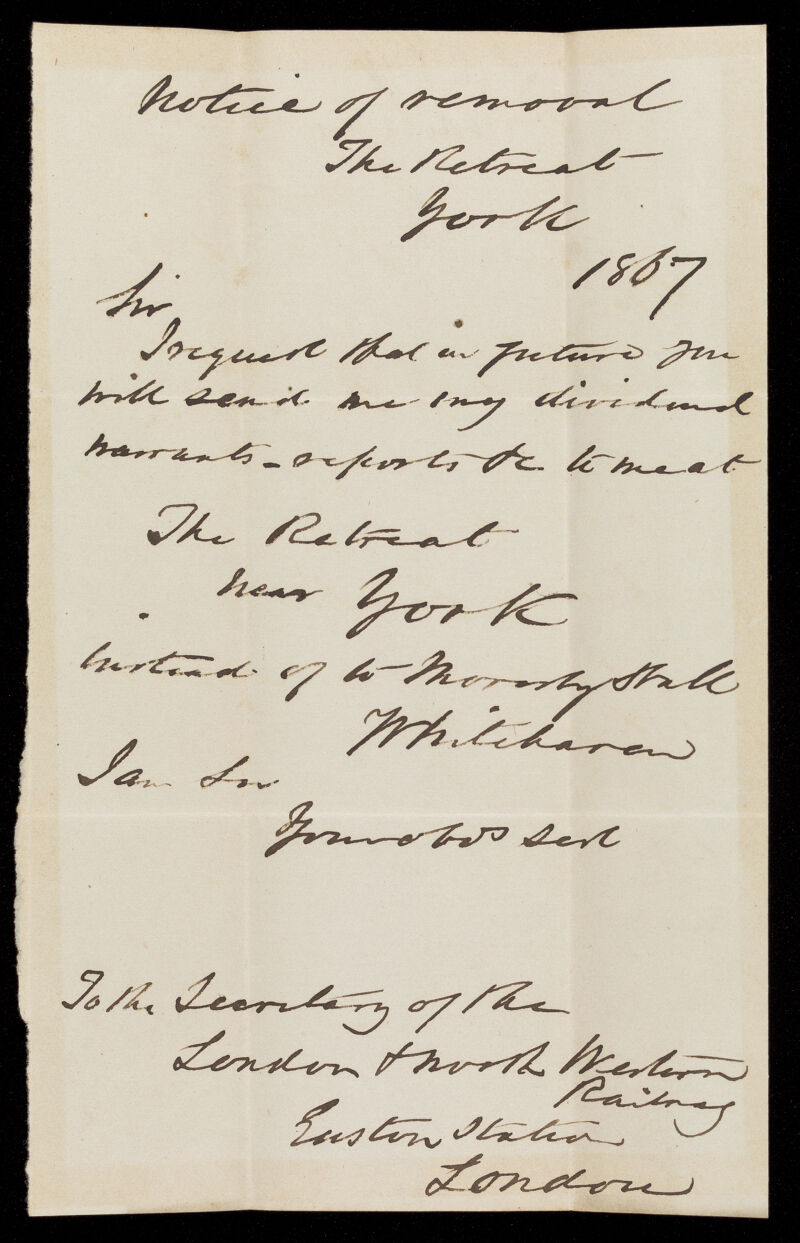 Notice of removal
The Retreat
York
1867
Sir
I request that in future you
will send me my dividend
warrants - reports &c to me at
The Retreat
near York
instead of to Moresby Hall
Whitehaven
I am Sir
Your obdt Servt
To the Secretary of the
London & North Western
Railway
Euston Station
London